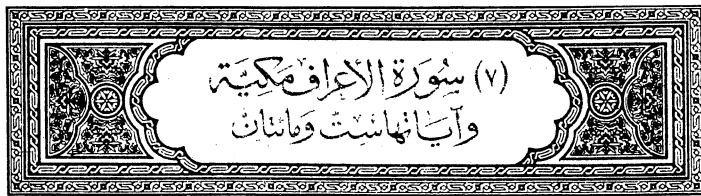 (٧) سُورَة الأعراف مَكيَّة
وَآيَاتهَا سِتّ وَمائتَان